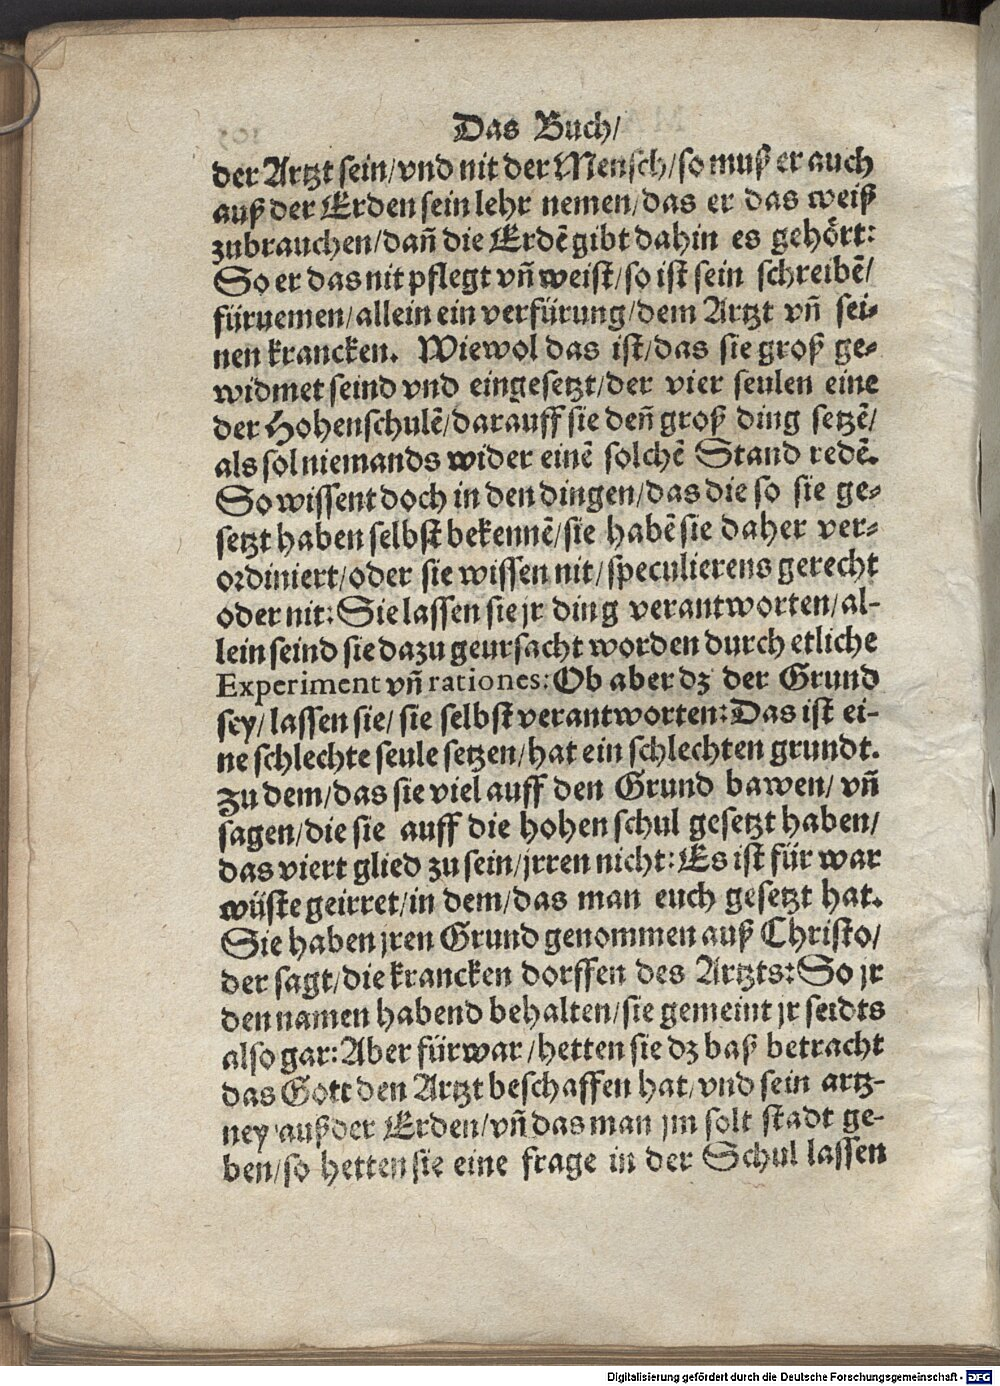 Das Buch/
der Artzt sein/vnd nit der Mensch/so muß er auch
auß der Erden sein lehr nemen/das er das weiß
zubrauchen/dañ die Erdẽ gibt dahin es gehört:
So er das nit pflegt vñ weist/so ist sein schreibẽ/
fürnemen/allein ein verfürung/dem Artzt vñ sei-
nen krancken. Wiewol das ist/das sie groß ge-
widmet seind vnd eingesetzt/der vier seulen eine
der Hohenschulẽ/darauff sie deñ groß ding setzẽ/
als sol niemands wider einẽ solchẽ Stand redẽ.
So wissent doch in den dingen/das die so sie ge-
setzt haben selbst bekennẽ/sie habẽ sie daher ver-
ordiniert/oder sie wissen nit/speculierens gerecht
oder nit: Sie lassen sie jr ding verantworten/al-
lein seind sie dazu geursacht worden durch etliche
Experiment vñ rationes: Ob aber dz der Grund
sey/lassen sie/sie selbst verantworten: Das ist ei-
ne schlechte seule setzen/hat ein schlechten grundt.
Zu dem/das sie viel auff den Grund bawen/vñ
sagen/die sie auff die hohen schul gesetzt haben/
das viert glied zu sein/jrren nicht: Es ist für war
wüste geirret/in dem/das man euch gesetzt hat.
Sie haben jren Grund genommen auß Christo/
der sagt/die krancken dorffen des Artzts: So jr
den namen habend behalten/sie gemeint jr seidts
also gar: Aber fürwar/hetten sie dz baß betracht
das Gott den Artzt beschaffen hat/vnd sein artz-
ney auß der Erden/vñ das man jm solt stadt ge-
ben/so hetten sie eine frage in der Schul lassen
Digitalisierung gefördert durch die Deutsche Forschungsgemeinschaft - DFG